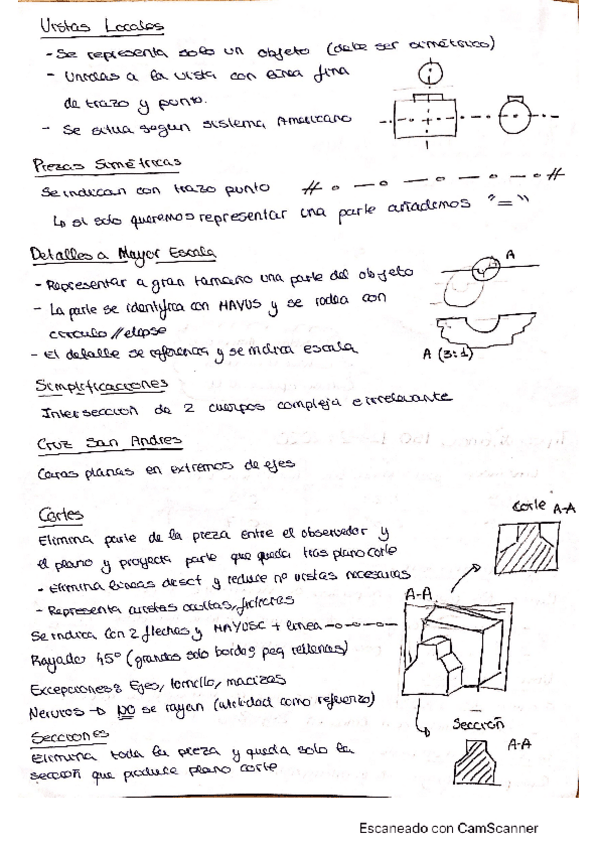 Vistas Locales
- Se representa solo un objeto (debe ser simétrico)
- Unidas a la vista con línea fina
de trazo y punto.
- Se situa segun sistema Americano
Piezas Simétricas
Se indican con trazo punto
↳ si solo queremos representar una parte añademos "="
Detalles a Mayor Escala
- Representar a gran tamaño una parte del objeto
A
- La parte se identifica con MAYUS y se rodea con
circulo // elipse
- El detalle se referencia y se indica escala
A (3:1)
Simplificaciones
Intersección de 2 cuerpos compleja e irrelevante
Cruz San Andres
Caras planas en extremos de ejes
Cortes
Corte A-A
Elimina parte de la pieza entre el observador y
el plano y proyecta parte que queda tras plano corte
- Elimina lineas disct y reduce nº vistas necesarias
A-A
- Representa aristas ocultas,
Se indica con 2 flechas y MAYUSC + linea
Rayado 45º (grandes solo bordes peq rellenas)
Excepciones: Ejes, tornillo, macizas
Nervios → NO se rayan (utilidad como refuerzo)
Sección
A-A
Secciones
Elimina toda la pieza y queda solo la
sección que produce plano corte
Escaneado con CamScanner